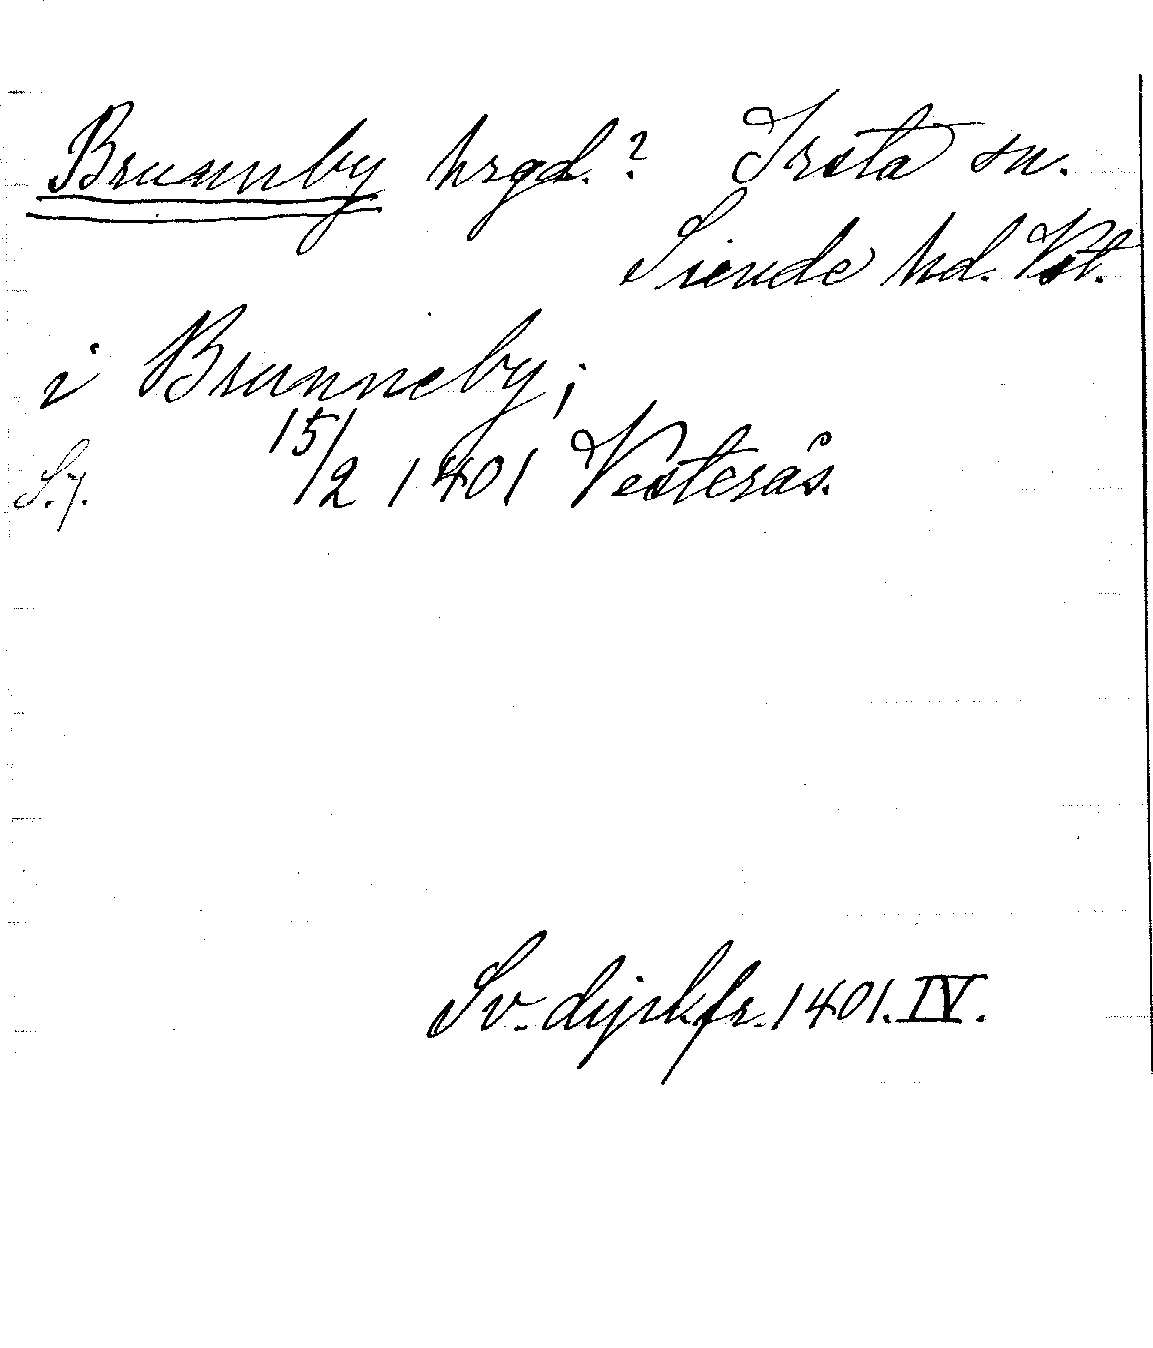 Brunnby hrgd.? Irsta sn.
Siende hd. Vstl.
i Brunneby;
S.7. 15/2 1401 Vesterås.
Sv. dipl. fr. 1401. IV.